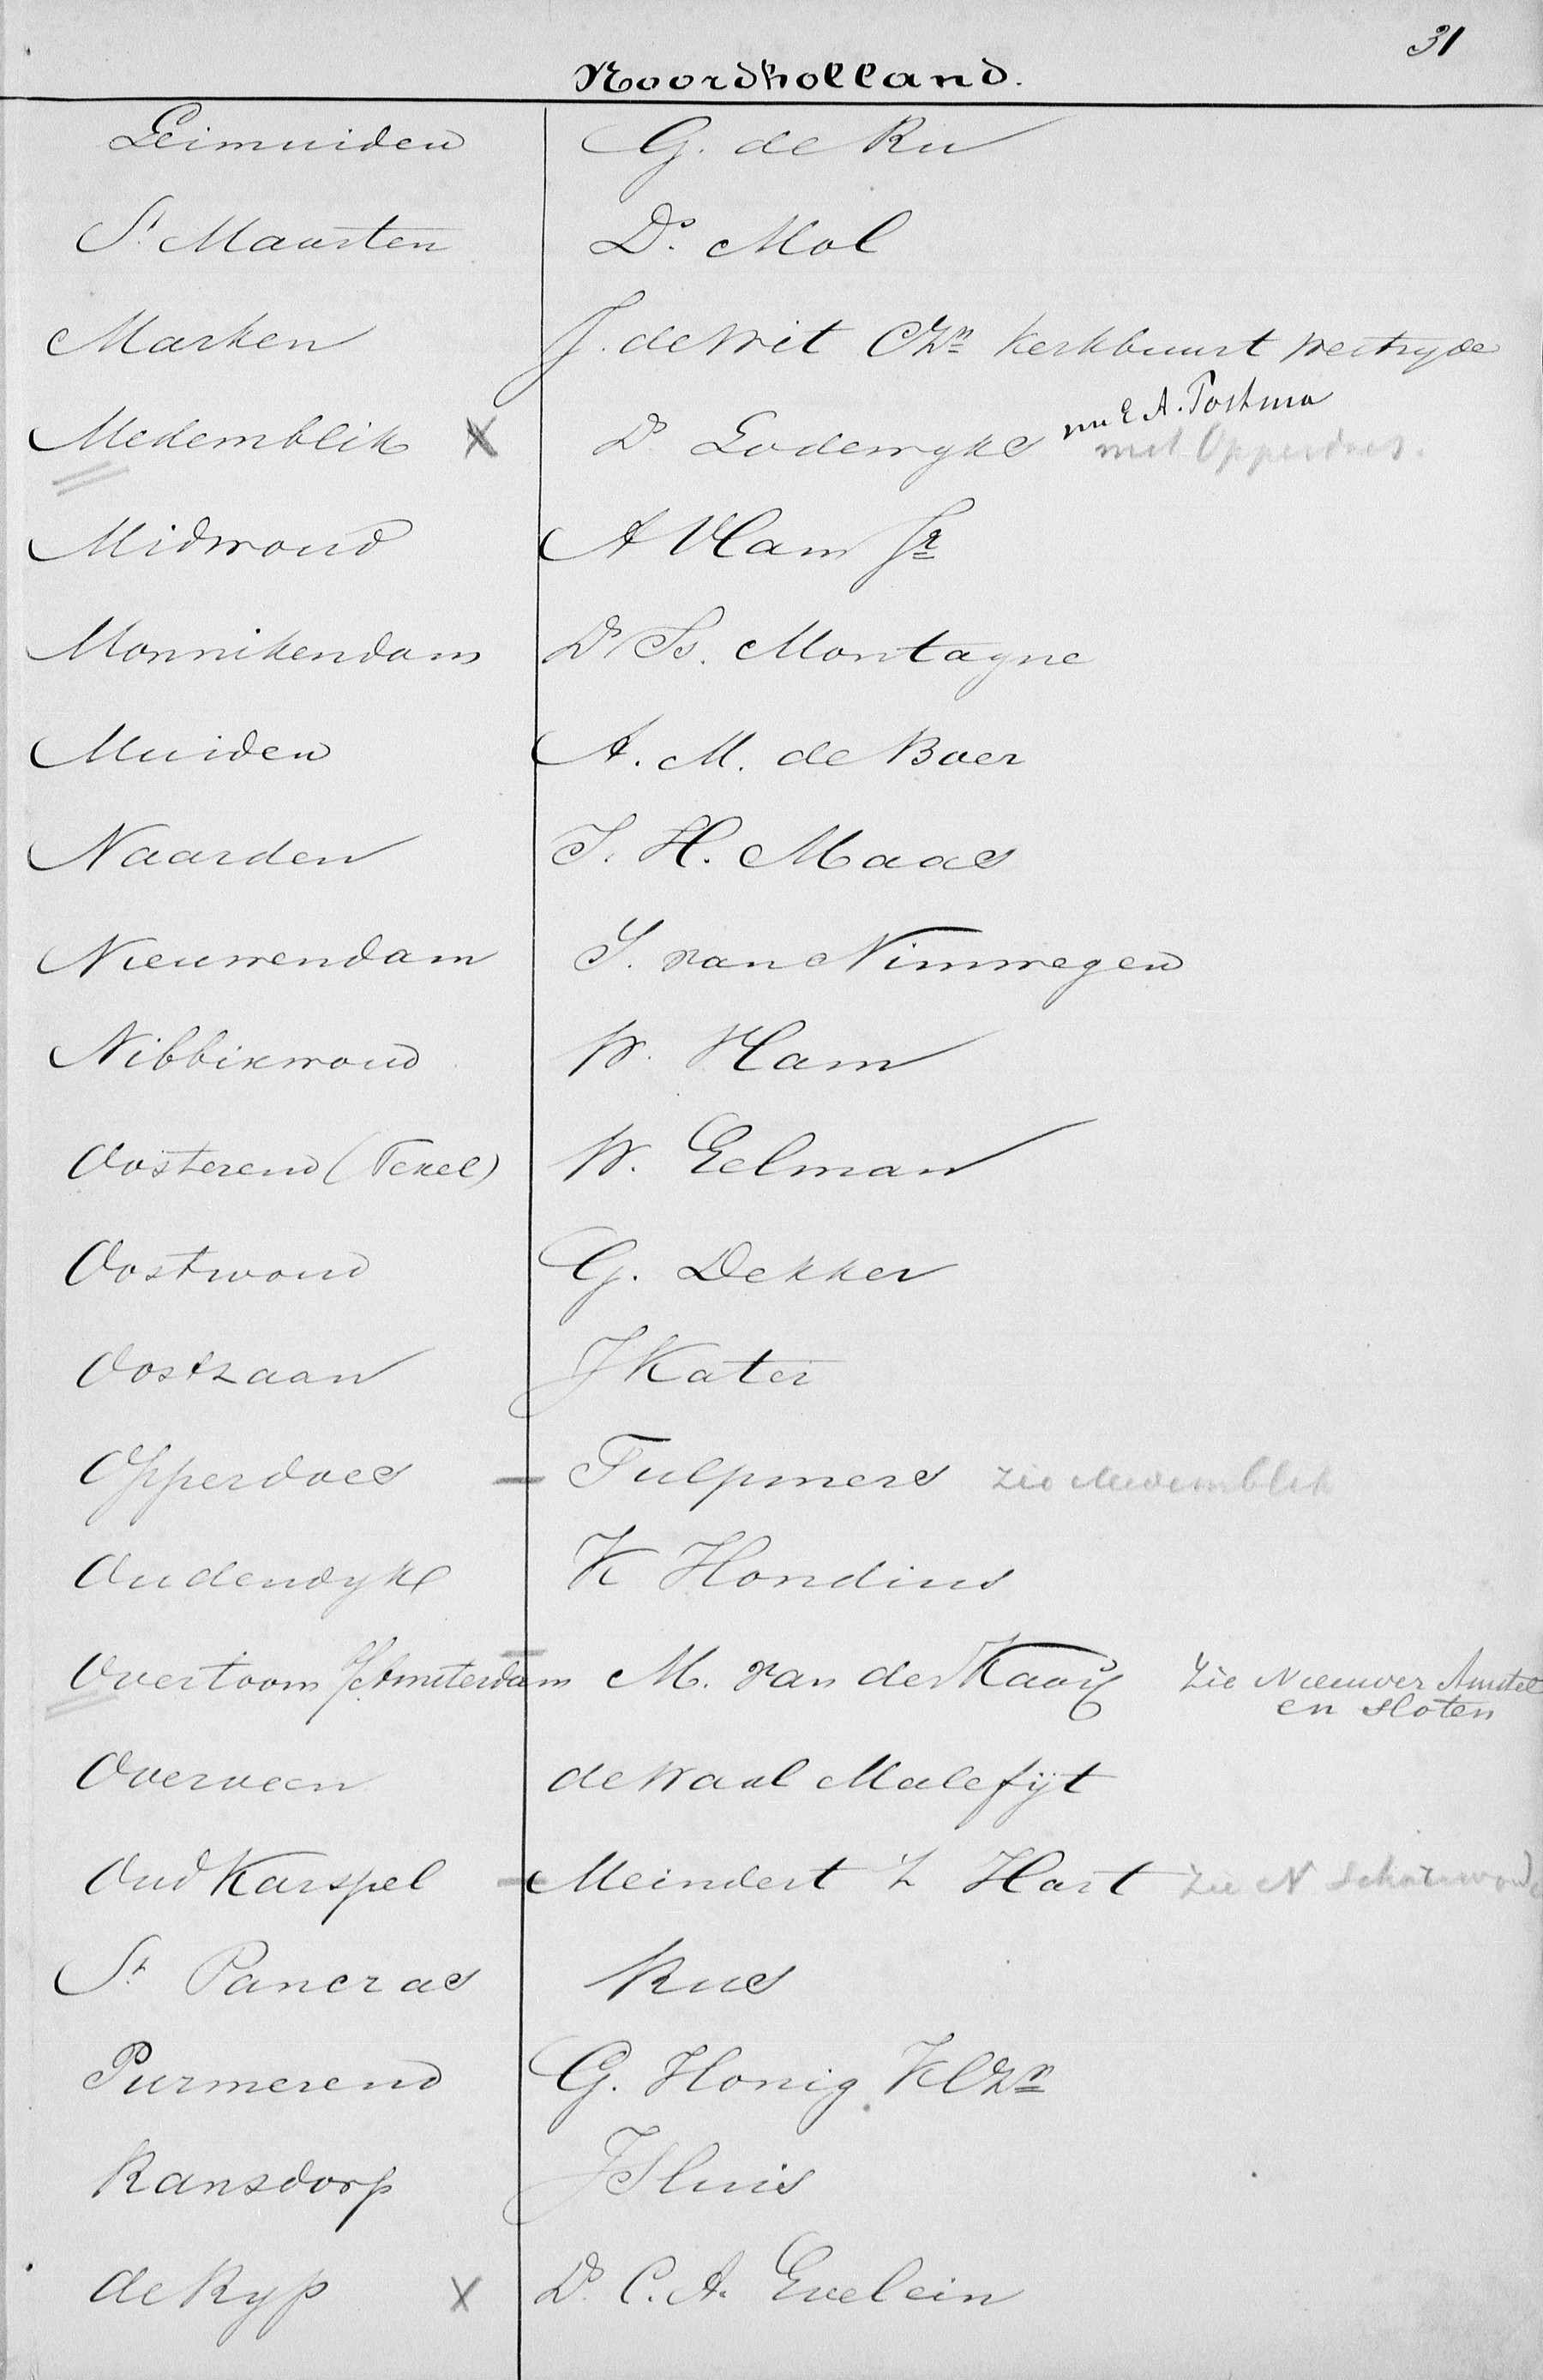 31
Noordholland.
Leimuiden G. de Ru
St. Maarten Ds. Mol
Marken J. de Wit CZn Kerkbuurt Westzyde
nu E A. Postma
Medemblik X Ds Lodewyks met Opperdoes.
Midwoud A Vlam Jr
Monnikendam Ds Js. Montagne
Muiden A. M. de Boer
Naarden J. H. Maas
Nieuwendam J. van Nimwegen
Nibbixwoud W. Ham
Oosterend (Texel) W. Eelman
Oostwoud G. Dekker
Oostzaan J Kater
Opperdoes — Tulpmers zie Medemblik
Oudendyk K Hondius
Overtoom Amsterdam M. van der Kaay Zie Nieuwer Amstel
en Sloten
Overveen de Waal Malefijt
Oud Karspel — Meindert Z Hart Zie N Scharwoude
St. Pancras Rus
Purmerend G. Honig KlZn
Ransdorp J Sluis
de Ryp X Ds. C. A. Evelein